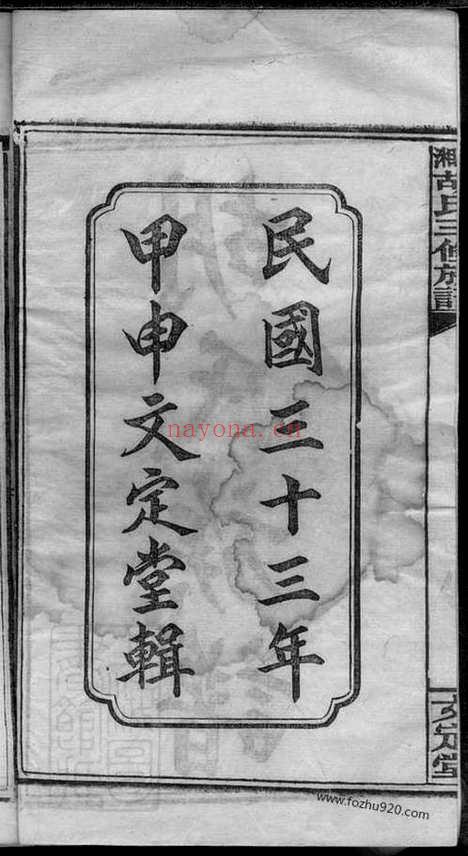 湘胡氏三修族譜
文定堂
民國三十三年
甲申文定堂輯
nayona.cn
www.fozhu920.com